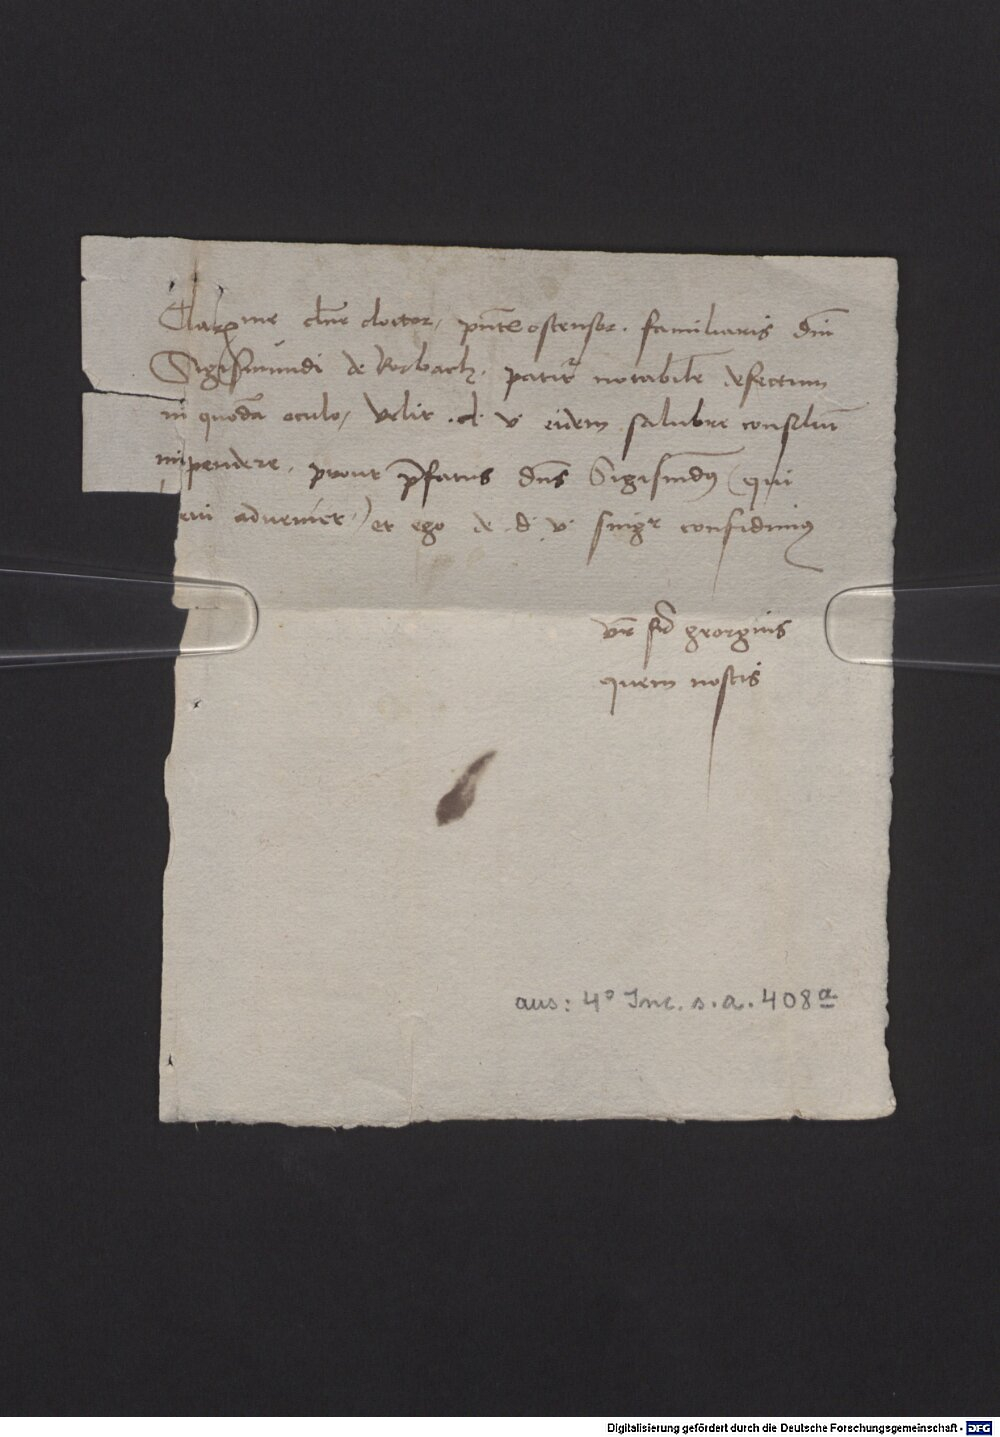 Clar᷑me d᷑ne doctor, pn̄tℓ ostensor. familiaris dn̄i
Sigismundi de Rorbach. patit᷑ notabilē defectum
in quodā oculo, velit .d. v. eidem salubre consiliū
impendere, prout p̄fatus dn̄s Sigismūdꝯ (qui
advenier) et ego de .d. v. singlʳ confidimꝯ
vr̄ georgius
quem nostis
aus: 4° Inc. s.a. 408ª
Digitalisierung gefördert durch die Deutsche Forschungsgemeinschaft - DFG